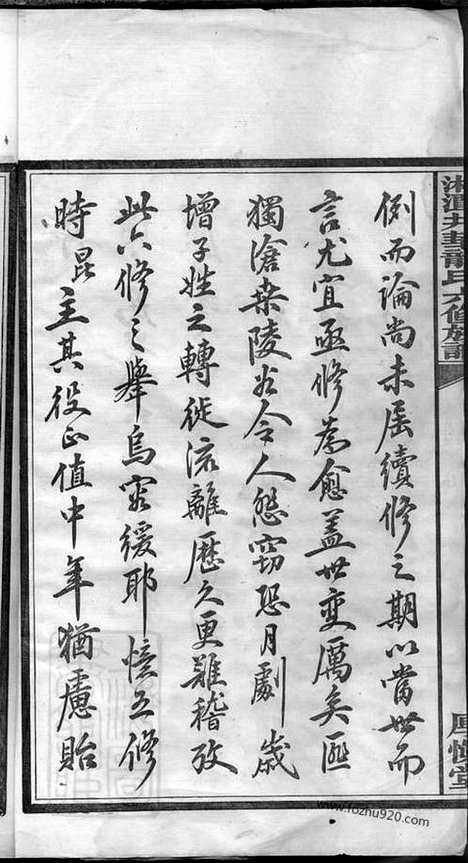 湘潭九華龍氏六修族譜
例而論尚未屆續修之期以當世而
言尤宜亟修為愈蓋世變厲矣匪
獨滄桑陵谷令人愁竊恐月劇歲
增子姓之轉徙流離歷久更難稽攷
此六修之舉烏容緩耶憶五修
時昆主其役正值中年猶慮貽
厚惇堂
www.fozhu920.com